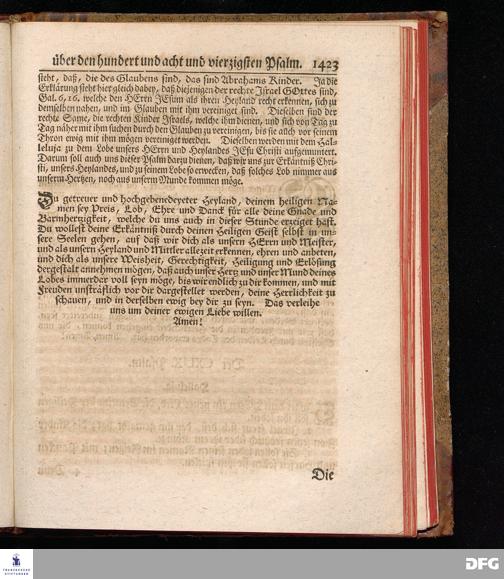 über den hundert und acht und vierzigsten Psalm. 1423
steht, daß, die des Glaubens sind, das sind Abrahams Kinder. Ja die
Erklärung steht hier gleich dabey, daß diejenigen der rechte Israel GOttes sind,
Gal. 6, 16. welche den HErrn JEsum als ihren Heyland recht erkennen, sich zu
demselben nahen, und im Glauben mit ihm vereiniget sind. Dieselben sind der
rechte Same, die rechten Kinder Israels, welche ihm dienen, und sich von Tag zu
Tag näher mit ihm suchen durch den Glauben zu vereinigen, bis sie auch vor seinem
Thron ewig mit ihm mögen vereiniget werden. Dieselben werden mit dem Hal-
leluja zu dem Lobe unsers HErrn und Heylandes JEsu Christi aufgemuntert.
Darum soll auch uns dieser Psalm darzu dienen, daß wir uns zur Erkäntniß Chri-
sti, unsers Heylandes, und zu seinem Lobe so erwecken, daß solches Lob nimmer aus
unserm Hertzen, noch aus unserm Munde kommen möge.
Du getreuer und hochgebenedeyeter Heyland, deinem heiligen Na-
men sey Preis, Lob, Ehre und Danck für alle deine Gnade und
Barmhertzigkeit, welche du uns auch in dieser Stunde erzeiget hast.
Du wollest deine Erkäntniß durch deinen Heiligen Geist selbst in un-
sere Seelen geben, auf daß wir dich als unsern HErrn und Meister,
und als unsern Heyland und Mittler allezeit erkennen, ehren und anbeten,
und dich als unsere Weisheit, Gerechtigkeit, Heiligung und Erlösung
dergestalt annehmen mögen, daß auch unser Hertz und unser Mund deines
Lobes immerdar voll seyn möge, bis wir endlich zu dir kommen, und mit
Freuden unsträflich vor dir dargestellet werden, deine Herrlichkeit zu
schauen, und in derselben ewig bey dir zu seyn. Das verleihe
uns um deiner ewigen Liebe willen.
Amen!
Die
FRANCKESCHE
STIFTUNGEN
DFG